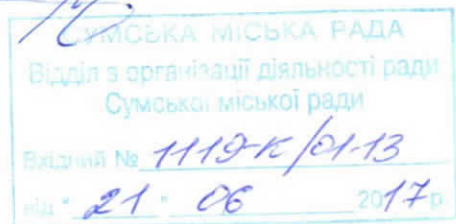 СУМСЬКА МІСЬКА РАДА
Відділ з організації діяльності ради
Сумської міської ради
Вхідний № 1119-К/01-13
від " 21 " 06 2017 р